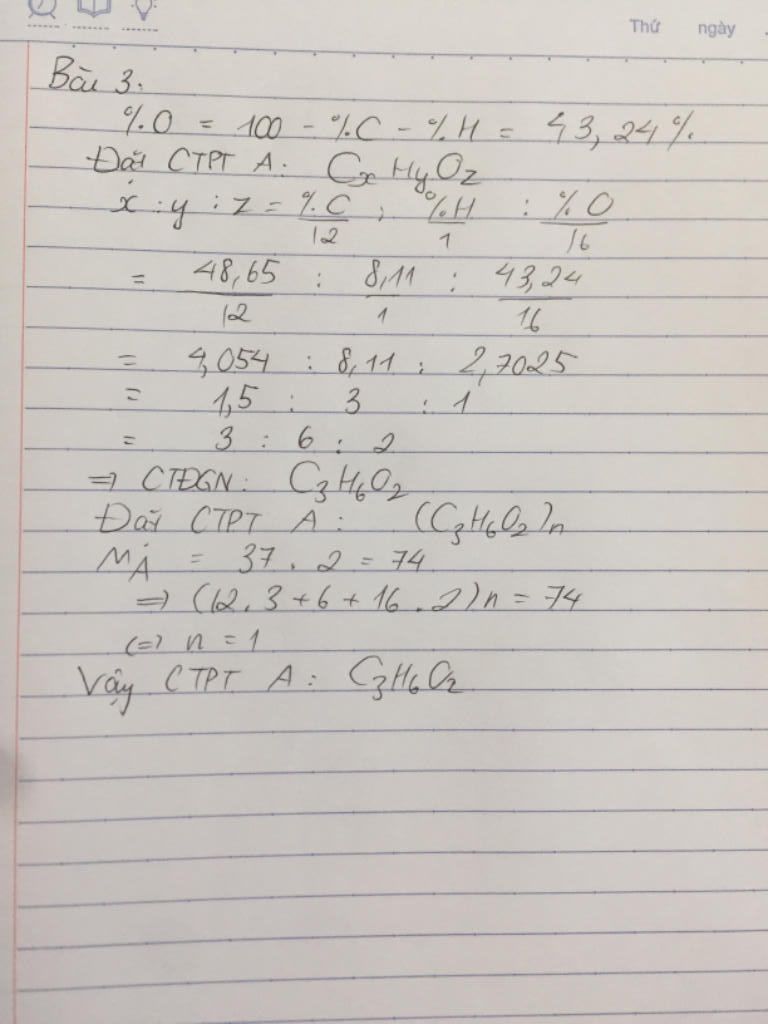 Thứ ngày
Bài 3.
%O = 100 - %C - %H = 43,24%.
Đặt CTPT A: CxHyOz
x : y : z = %C/12 : %H/1 : %O/16
= 48,65/12 : 8,11/1 : 43,24/16
= 4,054 : 8,11 : 2,7025
= 1,5 : 3 : 1
= 3 : 6 : 2
=> CTĐGN: C3H6O2
Đặt CTPT A: (C3H6O2)n
MA = 37.2 = 74
=> (12.3+6+16.2)n = 74
(=) n = 1
Vậy CTPT A: C3H6O2